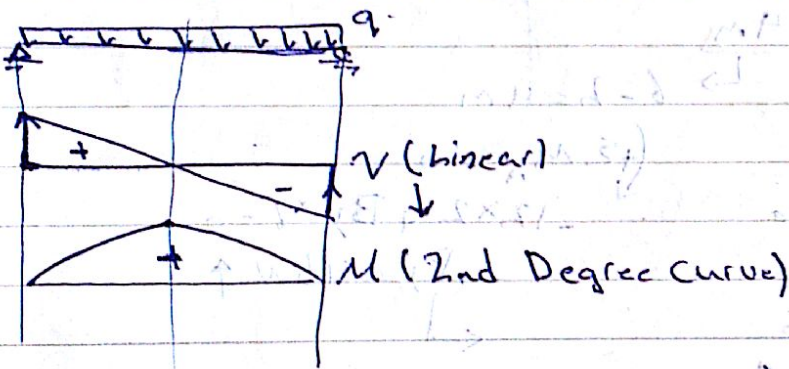 q.
+
V (Linear)
-
+
M (2nd Degree Curve)